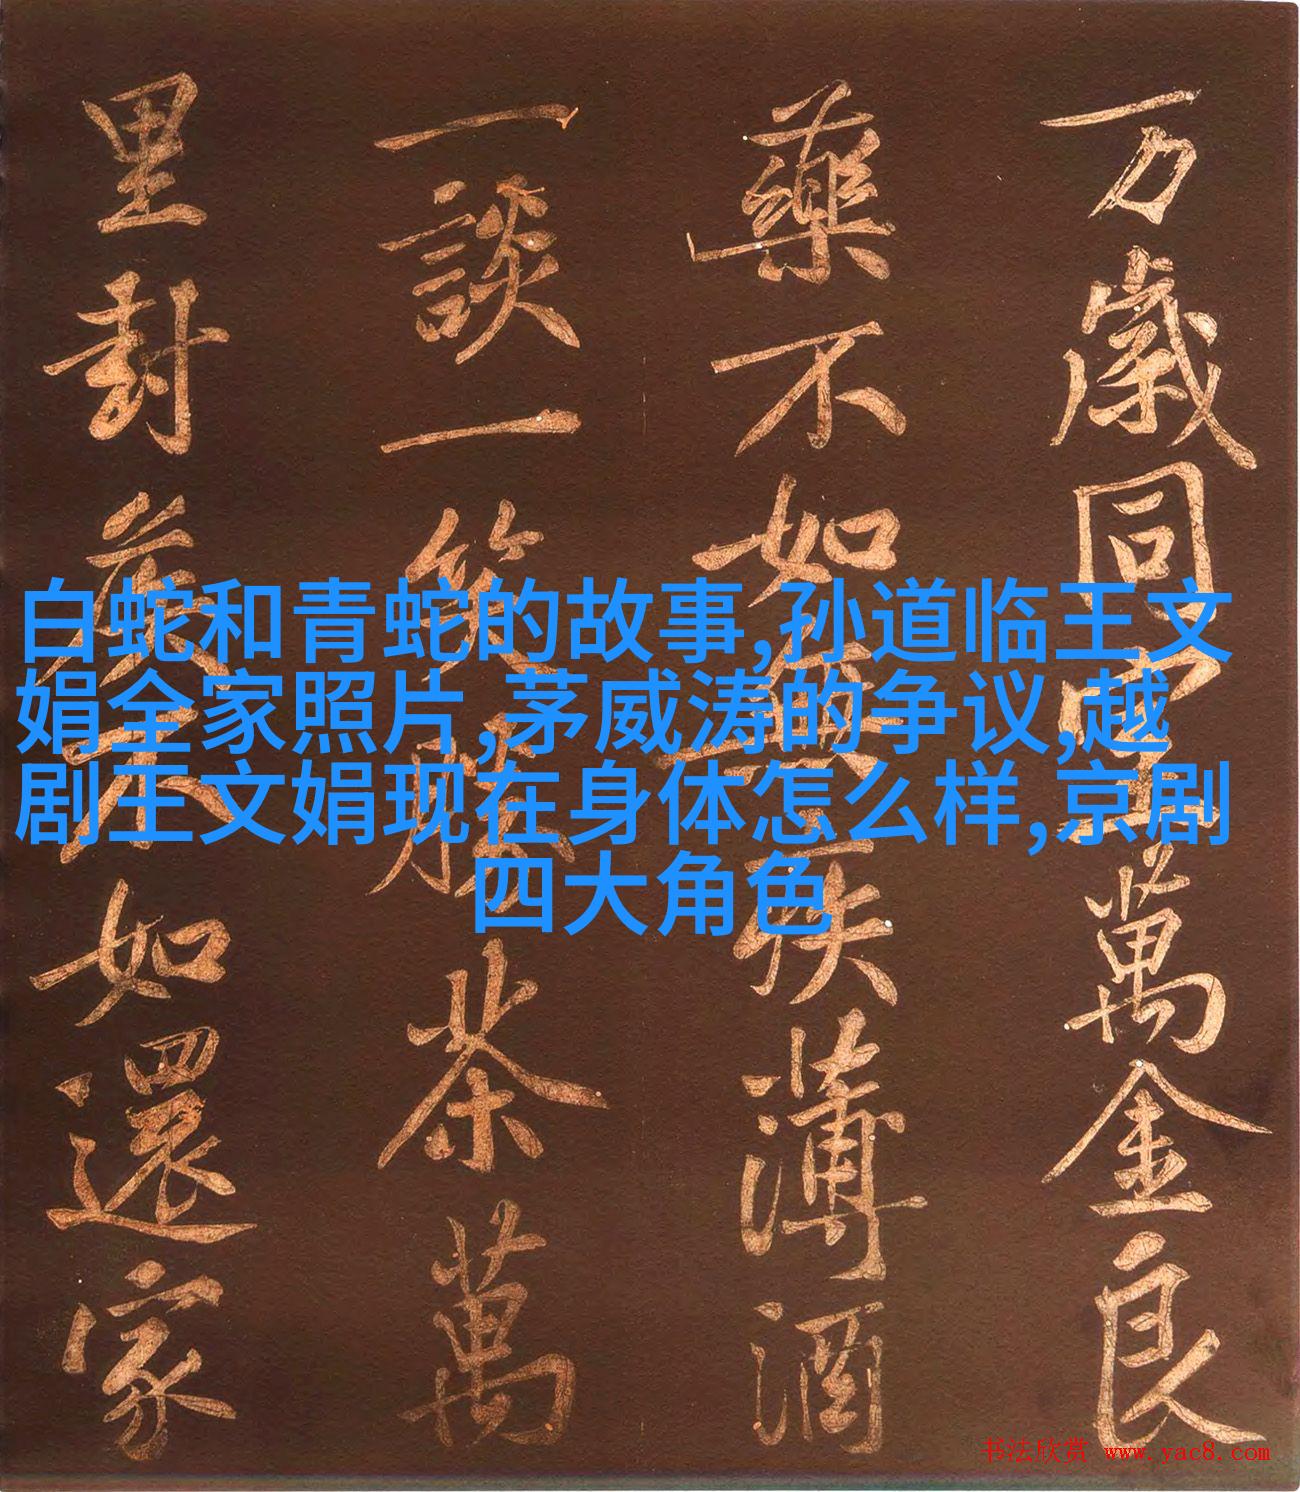 万歲同室萬金良
藥不如無疾薄酒
一談一笑勝茶萬
里封侯不如還家
白蛇和青蛇的故事,孙道临王文
娟全家照片,茅威涛的争议,越
剧王文娟现在身体怎么样,京剧
四大角色
书法欣赏 www.yac8.com